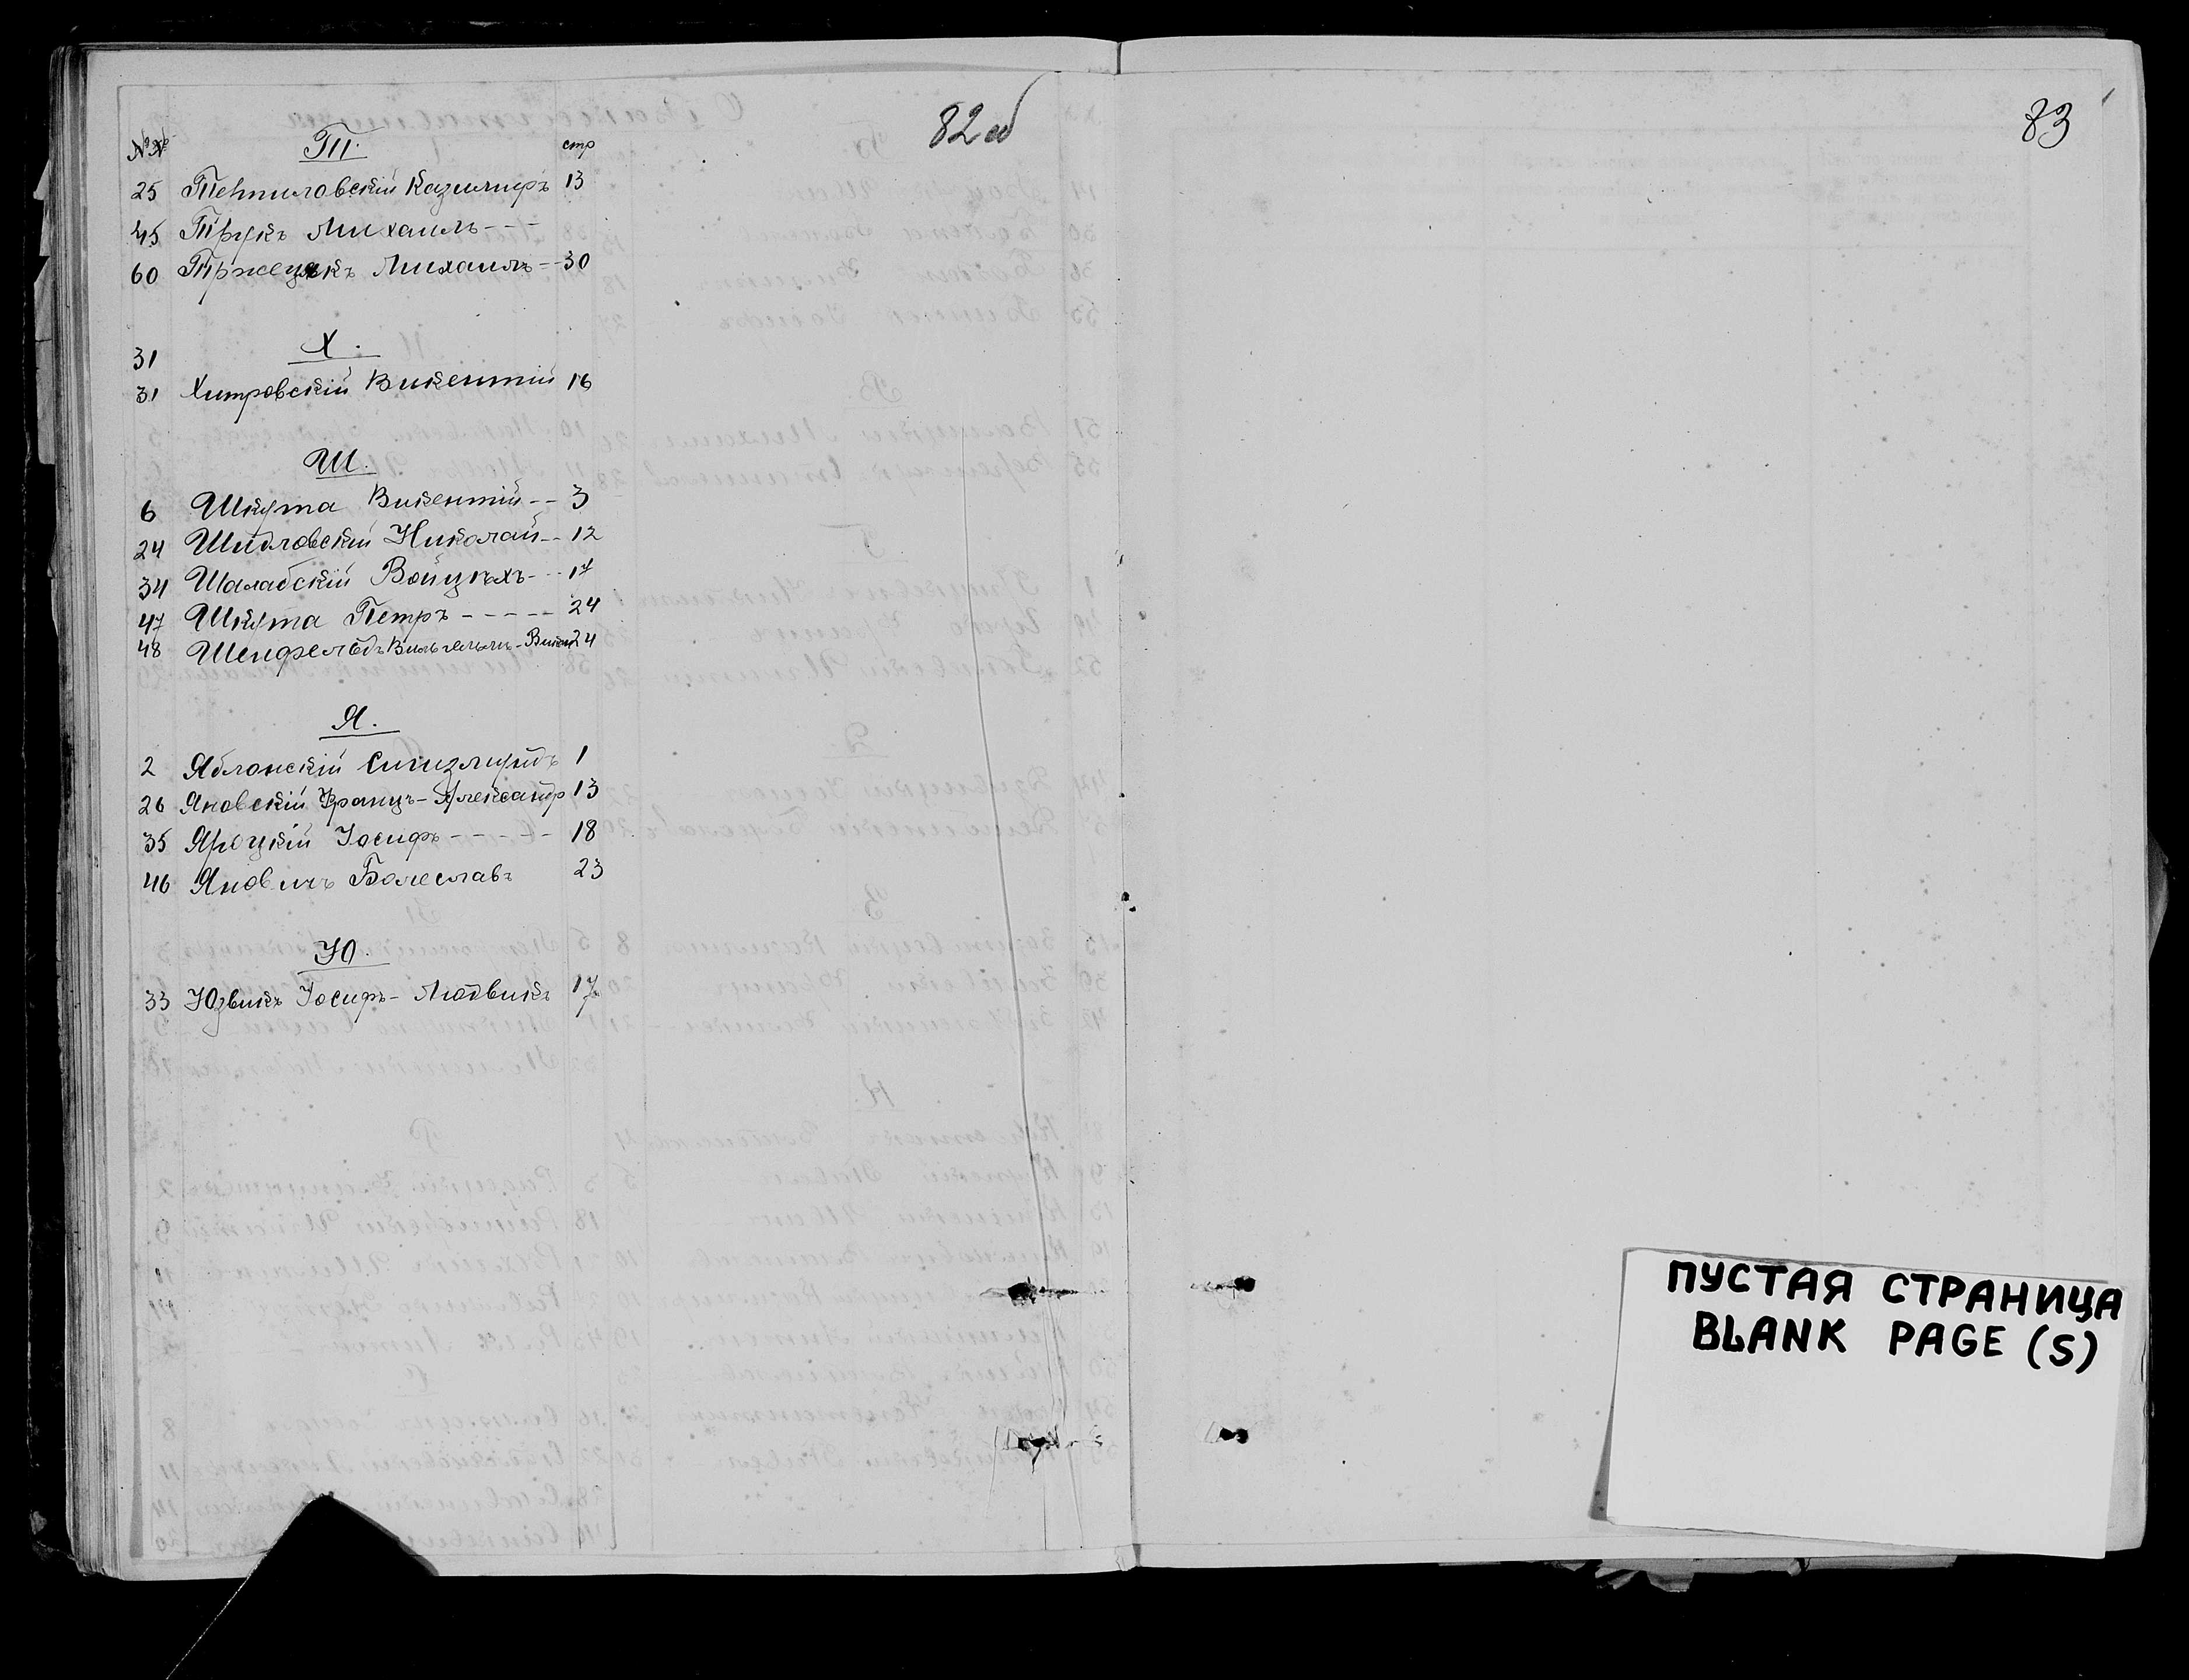 82 об
№№ Т. стр
25 Темпиловскій Казимиръ 13
45 Трукъ Михаилъ - - -
60 Тржецякъ Михаилъ - - 30
31 Х.
31 Хитровскій Викентій 16
Ш.
6 Шкута Викентій - - 3
24 Шидловскій Николай - - 12
34 Шалабскій Войцѣхъ - - - 17
47 Шкута Петръ - - - - - 24
48 Шенфельдъ Вильгельмъ - 24
Я.
2 Яблонскій Сигизмундъ 1
26 Яновскій Францъ - Александръ 13
35 Яроцкій Іосифъ - - - - - 18
46 Яновичъ Болеславъ 23
Ю.
33 Юзвикъ Іосифъ - Людвикъ 17
83
ПУСТАЯ СТРАНИЦА
BLANK PAGE (S)